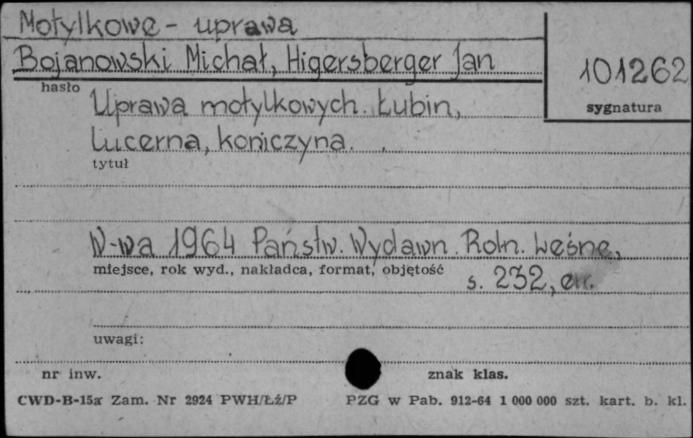 Motylkowe - uprawa
Bojanowski Michał, Higersberger Jan
101262
hasło
sygnatura
Uprawa motylkowych. Łubin,
Lucerna, koniczyna.
tytuł
W-wa 1964 Państw. Wydawn. Roln. Leśne,
miejsce, rok wyd., nakładca, format, objętość
s. 232,
uwagi:
nr inw.
znak klas.
CWD-B-15a Zam. Nr 2924 PWH/Łź/P
PZG w Pab. 912-64 1 000 000 szt. kart. b. kl.